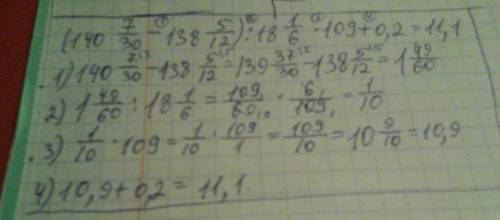 (140 7/30 − 138 5/12) : 18 1/6 · 109 + 0,2 = 11,1
1) 140 7/30 − 138 5/12 = 139 37/30 − 138 5/12 = 1 49/60
2) 1 49/60 : 18 1/6 = 109/60 · 6/109 = 1/10
3) 1/10 · 109 = 1/10 · 109/1 = 109/10 = 10 9/10 = 10,9
4) 10,9 + 0,2 = 11,1